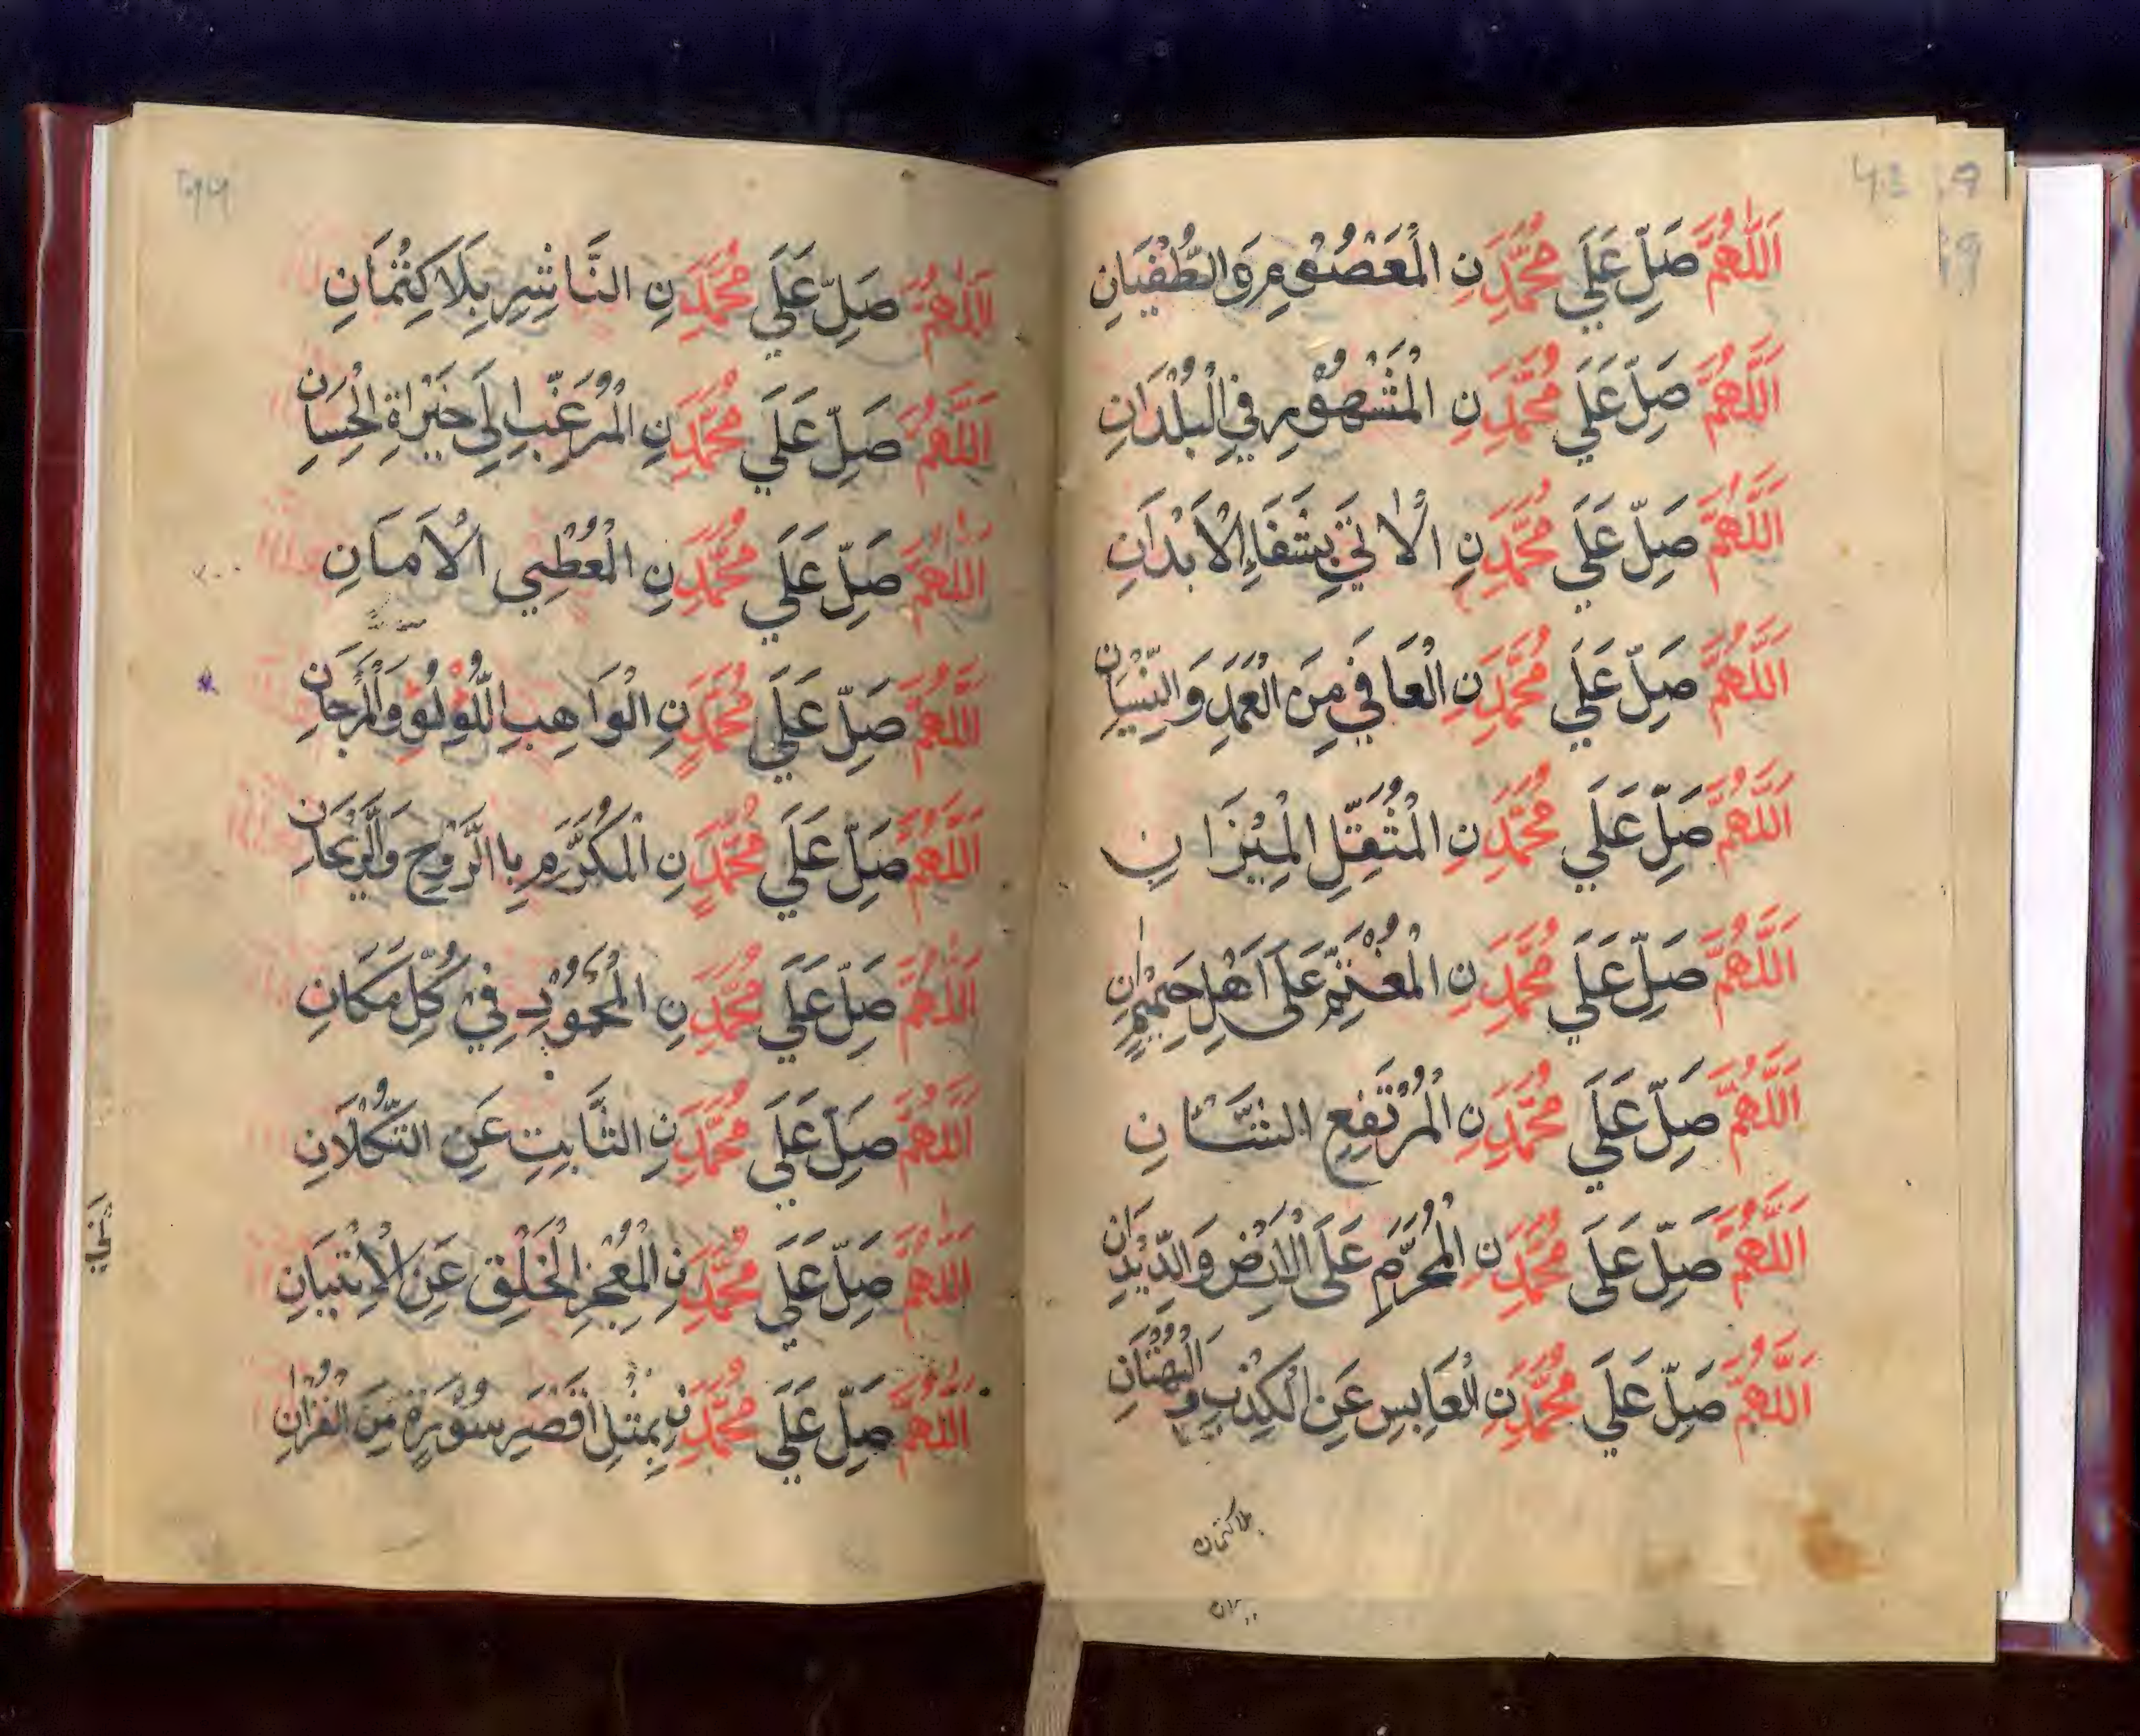 اَللّٰهُمَّ صَلِّ عَلَي مُحَمَّدٍ نِ الْمَعْصُوْمِ وَالطُّفْيَانِ
اَللّٰهُمَّ صَلِّ عَلَي مُحَمَّدٍ نِ الْمَشْهُوْرِ فِي الْبُلْدَانِ
اَللّٰهُمَّ صَلِّ عَلَي مُحَمَّدٍ نِ الْاٰتِيْ بِشَفَاءِ الْاَبْدَانِ
اَللّٰهُمَّ صَلِّ عَلَي مُحَمَّدٍ نِ الْعَافِي مِنَ الْعَمَدِ وَالنِّسْيَانِ
اَللّٰهُمَّ صَلِّ عَلَي مُحَمَّدٍ نِ الْمُثَقِّلِ الْمِيْزَانِ
اَللّٰهُمَّ صَلِّ عَلَي مُحَمَّدٍ نِ عَلَى اَهْلِ
اَللّٰهُمَّ صَلِّ عَلَي مُحَمَّدٍ نِ الْمُرْتَفِعِ الشَّانِ
اَللّٰهُمَّ صَلِّ عَلَى مُحَمَّدٍ نِ الْمُحَرَّمِ عَلَى الْاَرْضِ وَالدِّيْدَانِ
اَللّٰهُمَّ صَلِّ عَلَي مُحَمَّدٍ نِ الْعَابِسِ عَنِ الْكِذْبِ وَ الْبُهْتَانِ
بلا كتمان
اَللّٰهُمَّ صَلِّ عَلَي مُحَمَّدٍ نِ النَّاشِرِ بِلَا كِتْمَانِ
اَللّٰهُمَّ صَلِّ عَلَي مُحَمَّدٍ نِ الْمُرَغِّبِ اِلَى خَيْرَاةِ الْحِسَانِ
اَللّٰهُمَّ صَلِّ عَلَي مُحَمَّدٍ نِ الْمُعْطِي الْاَمَانِ
اَللّٰهُمَّ صَلِّ عَلَي مُحَمَّدٍ نِ الْوَاهِبِ اللُّوْلُوِ وَالْمَرْجَانِ
اَللّٰهُمَّ صَلِّ عَلَي مُحَمَّدٍ نِ الْمُكَرَّمِ بِا الرَّوْحِ وَالرَّيْحَانِ
اَللّٰهُمَّ صَلِّ عَلَي مُحَمَّدٍ نِ الْمَحْمُوْدِ فِيْ كُلِّ مَكَانِ
اَللّٰهُمَّ صَلِّ عَلَي مُحَمَّدٍ نِ الثَّابِتِ عَنِ التُّكْلَانِ
اَللّٰهُمَّ صَلِّ عَلَي مُحَمَّدٍ نِ الْمُعْجِزِ الْخَلْقِ عَنِ الْاِتْيَانِ
اَللّٰهُمَّ صَلِّ عَلَي مُحَمَّدٍ نِ بِمِثْلِ اَقْصَرِ سُوْرَةٍ مِنَ الْقُرْاٰنِ